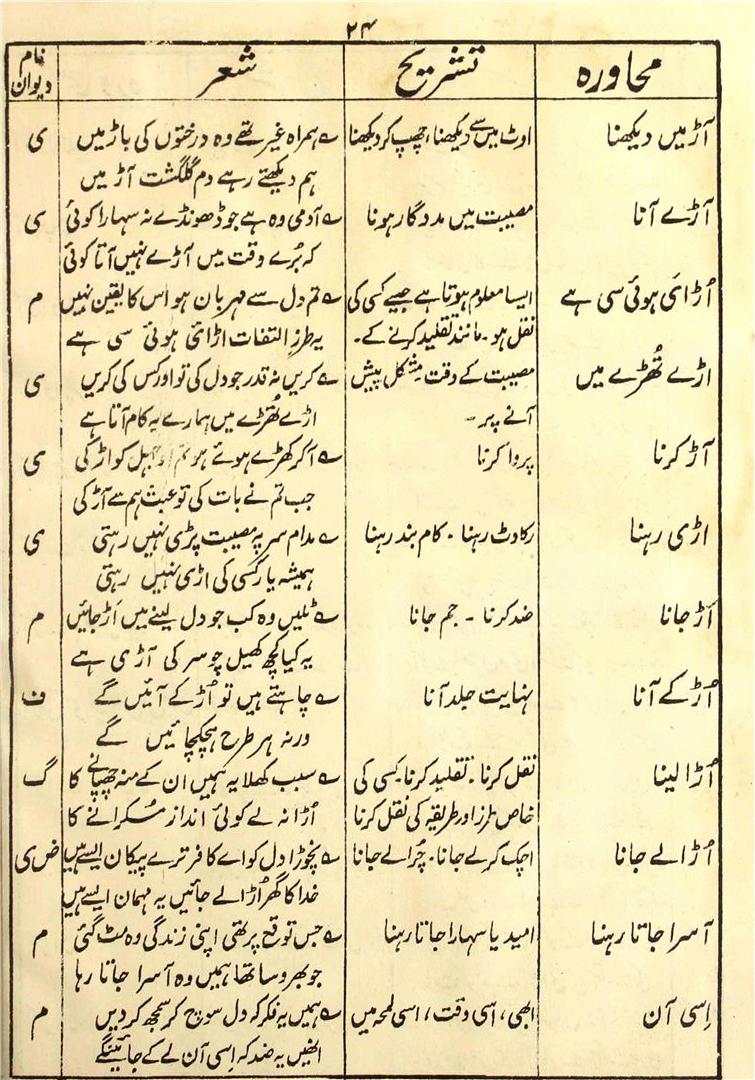 ۲۴
محاورہ
تشریح
شعر
نام دیوان
آڑ میں دیکھنا
اوٹ میں سے دیکھنا، چھپ کر دیکھنا
ہمراہ غیر تھے وہ درختوں کی باڑ میں
ہم دیکھتے رہے دم گلگشت آڑ میں
ی
آڑے آنا
مصیبت میں مددگار ہونا
آدمی وہ ہے جو ڈھونڈے نہ سہارا کوئی
کہ بُرے وقت میں آڑے نہیں آتا کوئی
ی
اُڑائی ہوئی سی ہے
ایسا معلوم ہوتا ہے جیسے کسی کی
نقل ہو۔ مانند تقلید کرنے کے۔
تم دل سے مہربان ہو اس کا یقین نہیں
یہ طرزِ التفات اڑائی ہوئی سی ہے
م
اڑے تُھڑے میں
مصیبت کے وقت مشکل پیش
آنے پر۔
کریں نہ قدر جو دل کی تو اور کس کی کریں
اڑے تُھڑے میں ہمارے یہ کام آتا ہے
ی
آڑ کرنا
پروا کرنا
آکر کھڑے ہوئے ہو تم اوجھل کواڑ کی
جب تم نے بات کی تو عبث ہم سے آڑ کی
ی
اڑی رہنا
رکاوٹ رہنا ۔ کام بند رہنا
مدام سر پہ مصیبت پڑی نہیں رہتی
ہمیشہ یار کسی کی اڑی نہیں رہتی
ی
اَڑ جانا
ضد کرنا ۔ جم جانا
ٹلیں وہ کب جو دل لینے میں اَڑ جائیں
یہ کیا کچھ کھیل چوسر کی آڑی ہے
م
اُڑ کے آنا
نہایت جلد آنا
چاہتے ہیں تو اُڑ کے آئیں گے
ورنہ ہر طرح ہچکچائیں گے
ف
اُڑا لینا
نقل کرنا ۔ تقلید کرنا۔ کسی کی
خاص طرز اور طریقہ کی نقل کرنا
سبب کھلا یہ ہمیں ان کے منہ چھپانے کا
اُڑا نہ لے کوئی انداز مسکرانے کا
گ
اُڑا لے جانا
اچک کر لے جانا۔ چُرا لے جانا
نچوڑا دل کو اے کافر ترے پیکان ایسے ہیں
خدا کا گھر اُڑا لے جائیں یہ مہمان ایسے ہیں
ض ی
آسرا جاتا رہنا
امید یا سہارا جاتا رہنا
جس توقع پر تھی اپنی زندگی وہ مٹ گئی
جو بھروسا تھا ہمیں وہ آسرا جاتا رہا
م
اِسی آن
ابھی، اسی وقت، اسی لمحہ میں
ہمیں یہ فکر کہ دل سوچ کر سمجھ کر دیں
انھیں یہ ضد کہ اِسی آن لے کے جائینگے
م